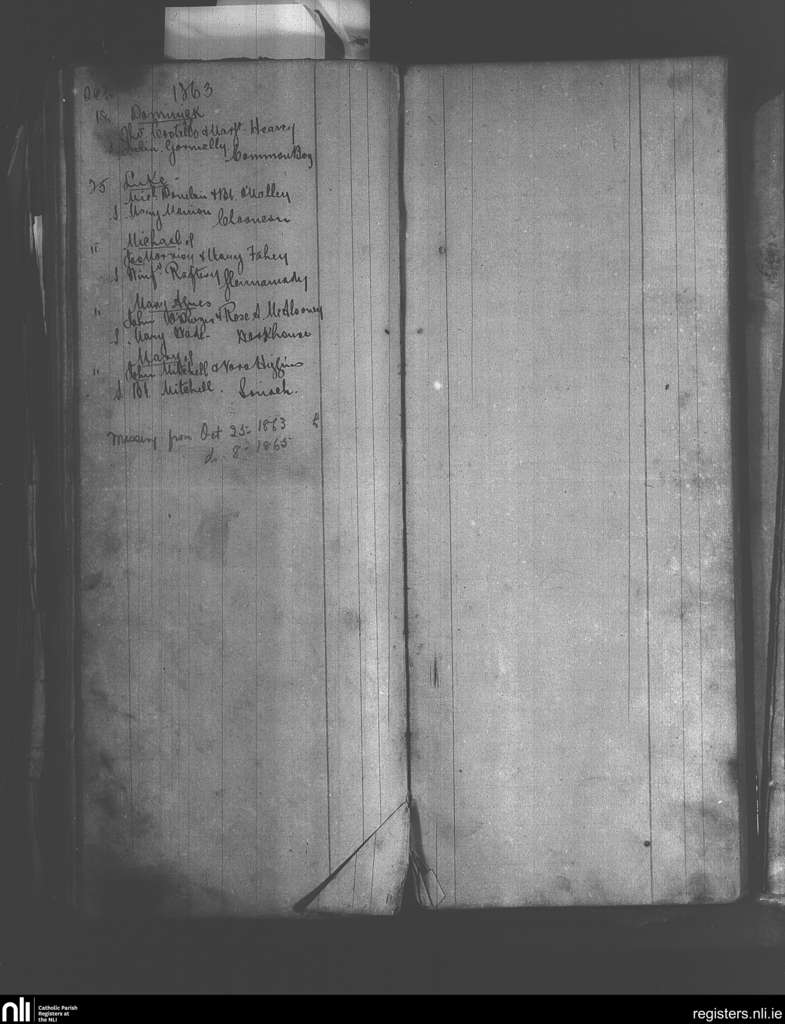 Oct 1863
18 Dominyck
Jno Costello & Margt Heavey
S Gormelly. Common Bog
25 Luke
Mich Donelan & Bt O'Malley
S Mary Mannion Clooneen
" Michael of
& Mary Fahey
S Winfd Raftery Glennamady
" Mary Agnes
John & Rose A McGlooney
S Mary Wade. Workhouse
" Mary of
John Mitchell & Nora Higgins
S Bt Mitchell.
Missing from Oct 25 - 1863
8 - 1865
nli
Catholic Parish
Registers at
the NLI
registers.nli.ie